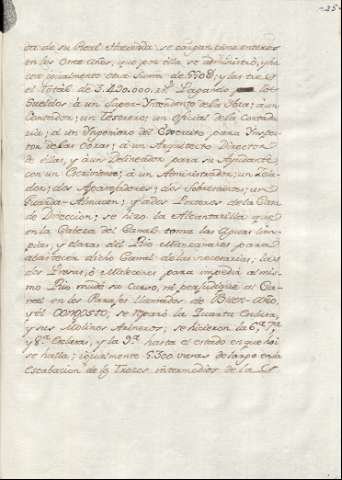 25
de su Real Hacienda se ocupan tiene enteros
en los Once años, que por ella se administró, y ha
ce igualmente otra Suma de
el Total de 3.420.000 r.s Pagando los
Sueldos à un Super-Yntendente de la Obra; à un
Contador; un Tesorero; un Oficial de la Contadu
ria; à un Yngeniero del Exercito para Ynspec
tor de las Obras; à un Arquitecto Director
de ellas, y à un Delineador para su Ayudante
con un Escribiente; à un Administrador; un Zela
dor; dos Aparejadores; dos Sobrestantes; un
Guarda-Almacen; y à dos Porteros de la Casa
de Direccion; se hizo la Alcantarilla que
en la Cabeza del Canal toma las Aguas lim
pias, y claras del Rio Manzanares para
abastecer dicho Canal de las necesarias, los
dos Presas, ò Malecones para impedir al mis
mo Rio mude su Curso, ni perjudique al Ca
nal en los Parajes llamados de
y el CONGOSTO; se reparó la Quarta Exclusa,
y sus Molinos Adnexos; se hicieron la 6.a 7.a
y 8.a Exclusas, y la 9.a hasta el estado en que hoi
se halla; igualmente 5.300 varas de largo en la
Escabacion de los Trozos intermedios de la